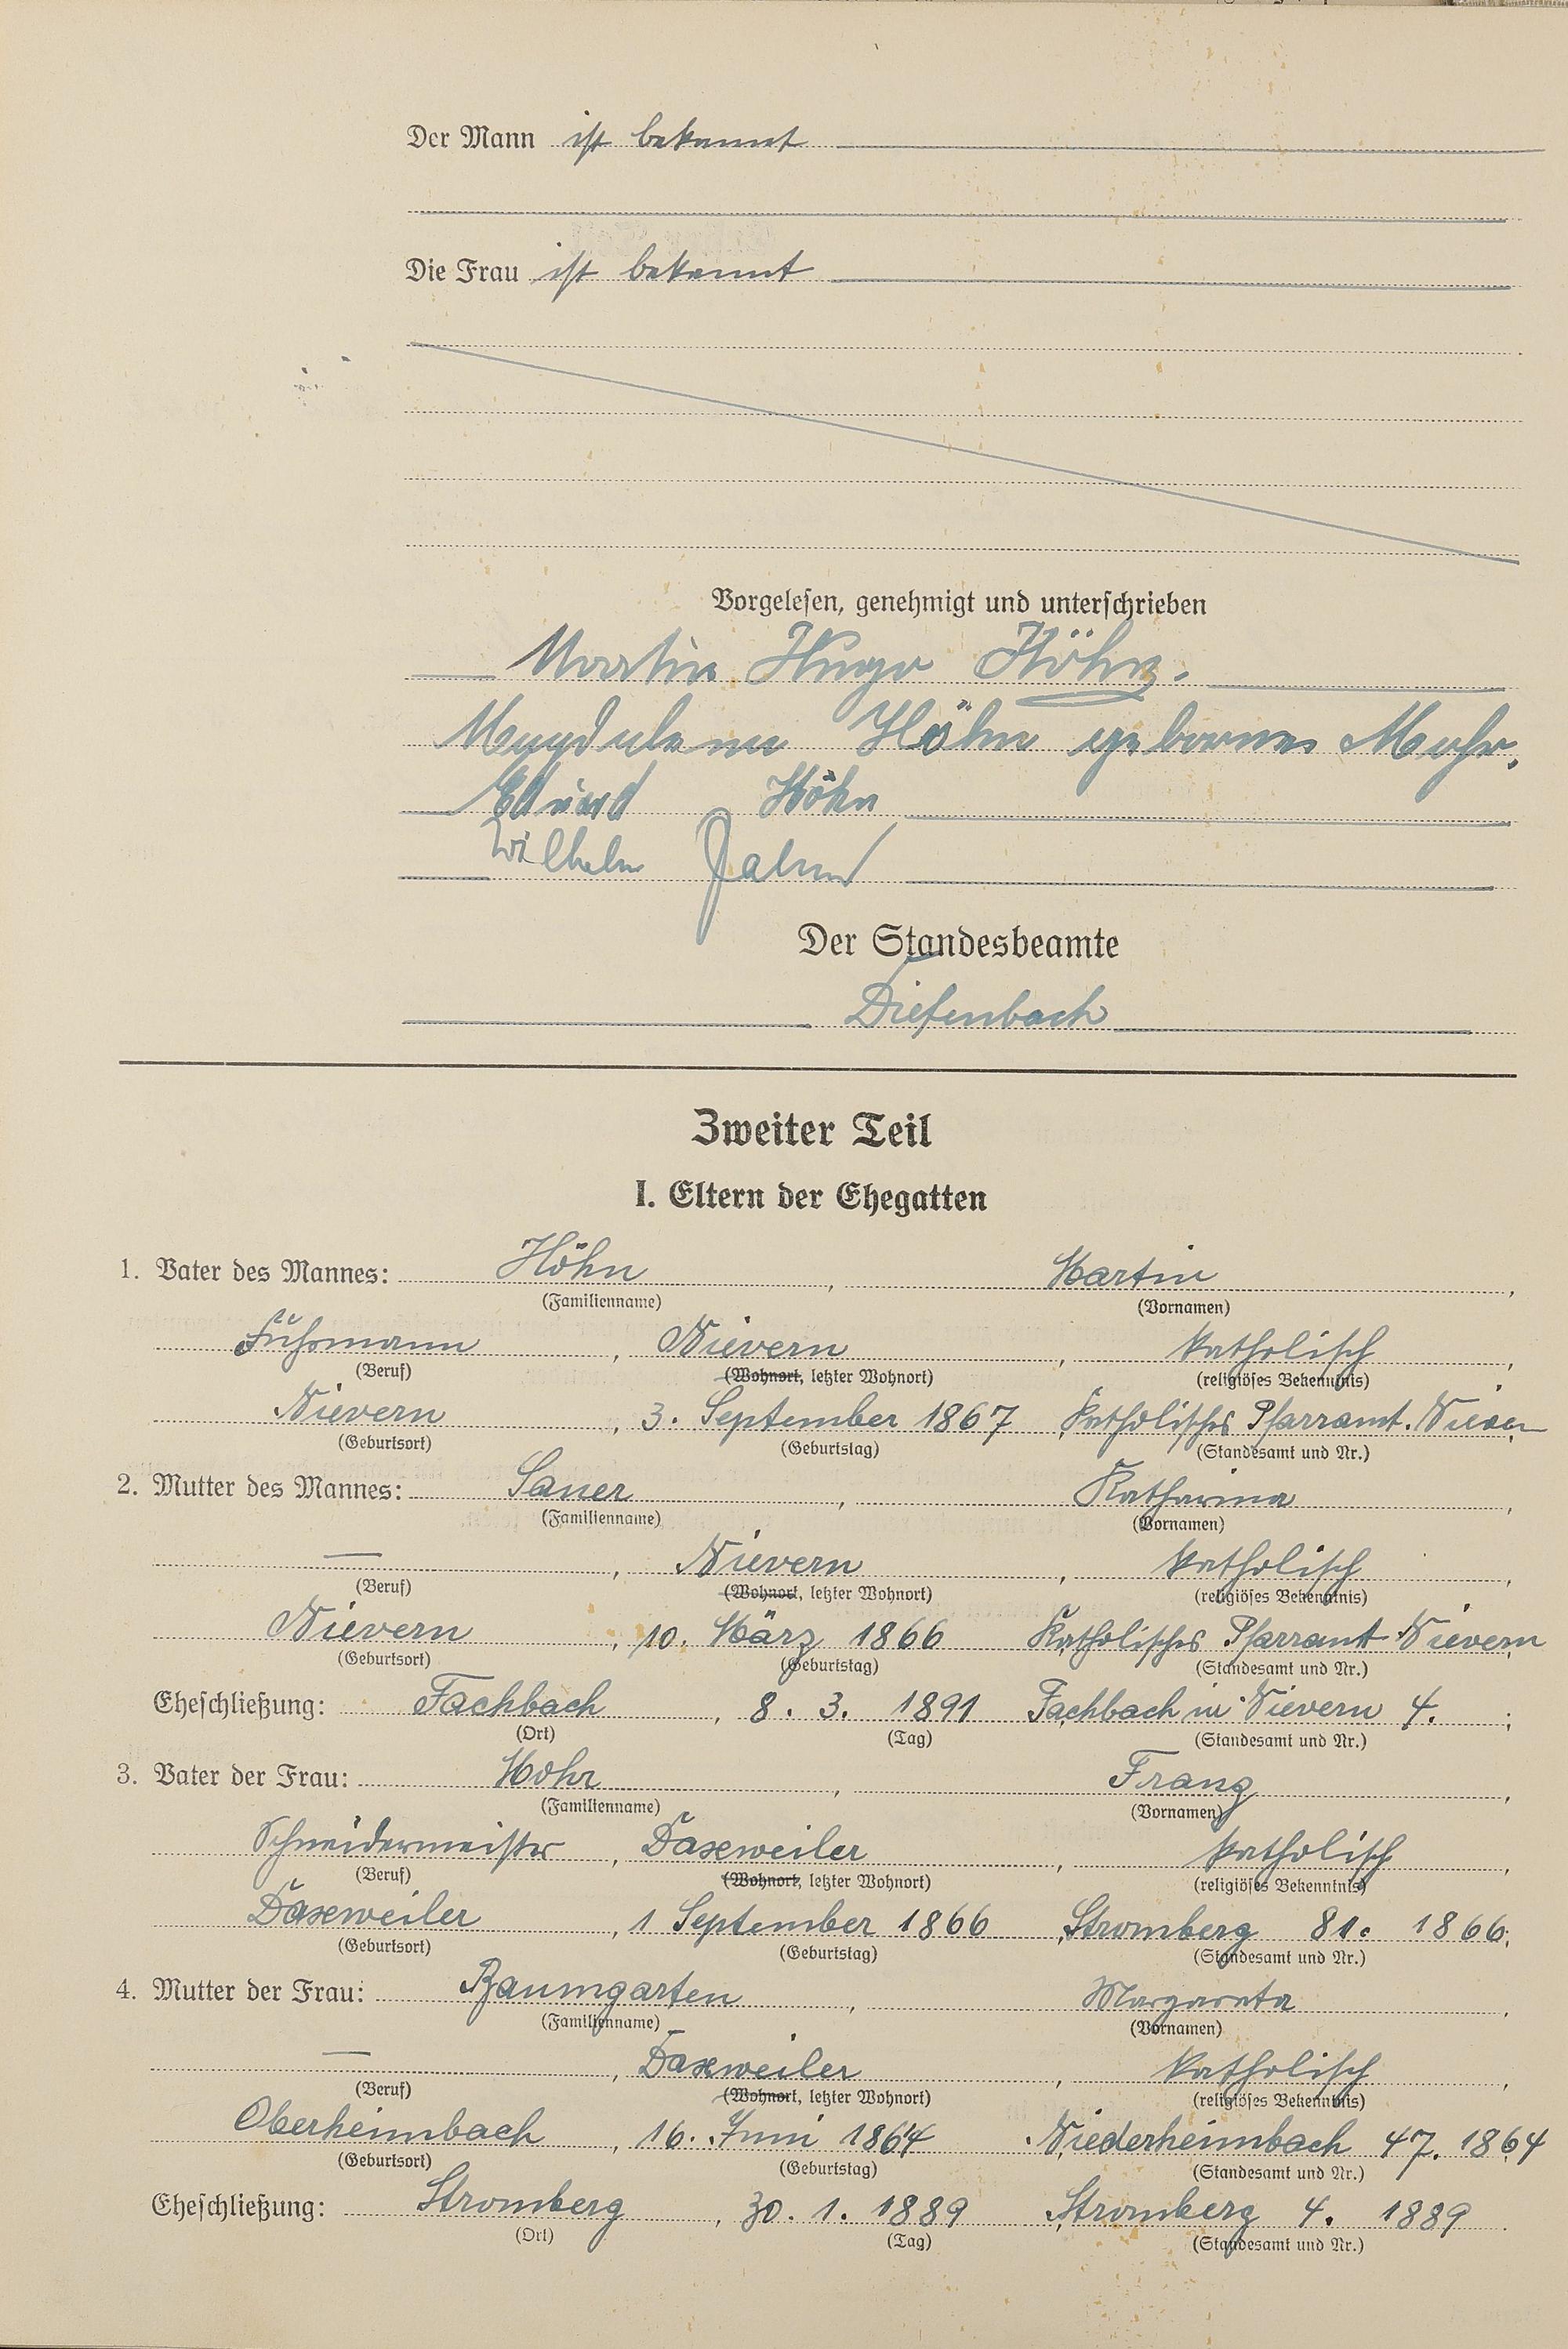 Der Mann ist bekannt
Die Frau ist bekannt
Vorgelesen, genehmigt und unterschrieben
Martin Hugo Höhn.
Magdalena Höhn geborene Mohr.
Eduard Höhn
Wilhelm
Der Standesbeamte
Diefenbach
Zweiter Teil
I. Eltern der Ehegatten
1. Vater des Mannes: Höhn, Martin,
(Familienname) (Vornamen)
Fuhrmann, Nievern, katholisch,
(Beruf) (Wohnort, letzter Wohnort) (religiöses Bekenntnis)
Nievern, 3. September 1867 Katholisches Pfarramt. Nievern
(Geburtsort) (Geburtstag) (Standesamt und Nr.)
2. Mutter des Mannes: Sauer, Katharina,
(Familienname) (Vornamen)
—, Nievern, katholisch,
(Beruf) (Wohnort, letzter Wohnort) (religiöses Bekenntnis)
Nievern, 10. März 1866 Katholisches Pfarramt Nievern
(Geburtsort) (Geburtstag) (Standesamt und Nr.)
Eheschließung: Fachbach, 8. 3. 1891 Fachbach in Nievern 4.;
(Ort) (Tag) (Standesamt und Nr.)
3. Vater der Frau: Mohr, Franz,
(Familienname) (Vornamen)
Schneidermeister, Daxweiler, katholisch,
(Beruf) (Wohnort, letzter Wohnort) (religiöses Bekenntnis)
Daxweiler, 1 September 1866, Stromberg 81. 1866;
(Geburtsort) (Geburtstag) (Standesamt und Nr.)
4. Mutter der Frau: Baumgarten, Margareta,
(Familienname) (Vornamen)
—, Daxweiler, katholisch,
(Beruf) (Wohnort, letzter Wohnort) (religiöses Bekenntnis)
Oberheimbach, 16. Juni 1864 Niederheimbach 47. 1864
(Geburtsort) (Geburtstag) (Standesamt und Nr.)
Eheschließung: Stromberg, 30. 1. 1889, Stromberg 4. 1889.
(Ort) (Tag) (Standesamt und Nr.)